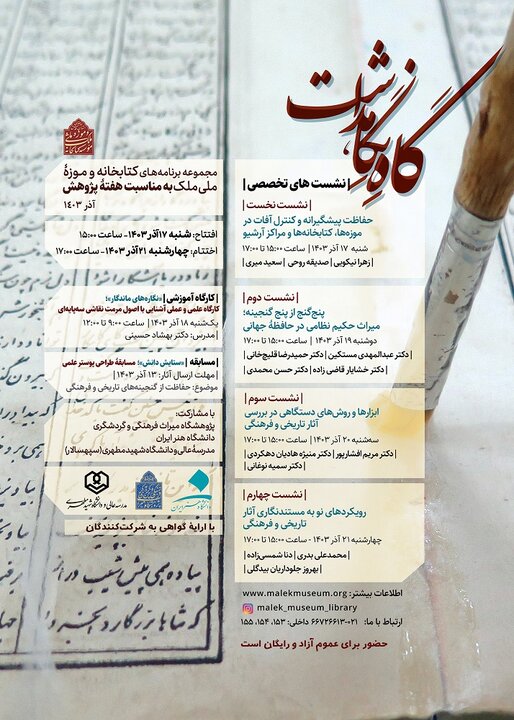 گاهِ نگاهداشت
| نشست های تخصصی |
| نشست نخست |
حفاظت پیشگیرانه و کنترل آفات در
موزه‌ها، کتابخانه‌ها و مراکز آرشیو
شنبه ۱۷ آذر ۱۴۰۳ | ساعت ۱۵:۰۰ تا ۱۷:۰۰
| زهرا نیکویی | صدیقه روحی | سعید میری |
| نشست دوم |
پنج‌گنج از پنج گنجینه؛
میراث حکیم نظامی در حافظهٔ جهانی
دوشنبه ۱۹ آذر ۱۴۰۳ | ساعت ۱۵:۰۰ تا ۱۷:۰۰
| دکتر عبدالمهدی مستکین | دکتر حمیدرضا قلیچ‌خانی |
| دکتر خشایار قاضی زاده | دکتر حسن محمدی |
| نشست سوم |
ابزارها و روش‌های دستگاهی در بررسی
آثار تاریخی و فرهنگی
سه‌شنبه ۲۰ آذر ۱۴۰۳ | ساعت ۱۵:۰۰ تا ۱۷:۰۰
| دکتر مریم افشارپور | دکتر منیژه هادیان دهکردی |
| دکتر سمیه نوغانی |
| نشست چهارم |
رویکردهای نو به مستندنگاری آثار
تاریخی و فرهنگی
چهارشنبه ۲۱ آذر ۱۴۰۳ - ساعت ۱۵:۰۰ تا ۱۷:۰۰
| محمدعلی بدری | دنا شمسی‌زاده |
| بهروز جلوداریان بیدگلی |
اطلاعات بیشتر: www.malekmuseum.org
malek_museum_library
ارتباط با ما: ۰۲۱-۶۶۷۲۶۶۱۳ داخلی: ۱۵۳، ۱۵۴، ۱۵۵
حضور برای عموم آزاد و رایگان است
مجموعه برنامه‌های کتابخانه و موزهٔ
ملی ملک به مناسبت هفتهٔ پژوهش
آذر ۱۴۰۳
افتتاح: شنبه ۱۷ آذر ۱۴۰۳ - ساعت ۱۵:۰۰
اختتام: چهارشنبه ۲۱ آذر ۱۴۰۳ - ساعت ۱۷:۰۰
| کارگاه آموزشی | «نگاره‌های ماندگار»؛
کارگاه علمی و عملی آشنایی با اصول مرمت نقاشی سه‌پایه‌ای
یک‌شنبه ۱۸ آذر ۱۴۰۳ | ساعت ۹:۰۰ تا ۱۲:۰۰
| مدرس: دکتر بهشاد حسینی
| مسابقه | «ستایش دانش»؛ مسابقهٔ طراحی پوستر علمی
| مهلت ارسال آثار: ۱۳ آذر ۱۴۰۳ |
موضوع: حفاظت از گنجینه‌های تاریخی و فرهنگی
با مشارکت:
پژوهشگاه میراث فرهنگی و گردشگری
دانشگاه هنر ایران
مدرسهٔ عالی و دانشگاه شهید مطهری (سپهسالار)
با ارایهٔ گواهی به شرکت‌کنندگان
پیاده همی پیش